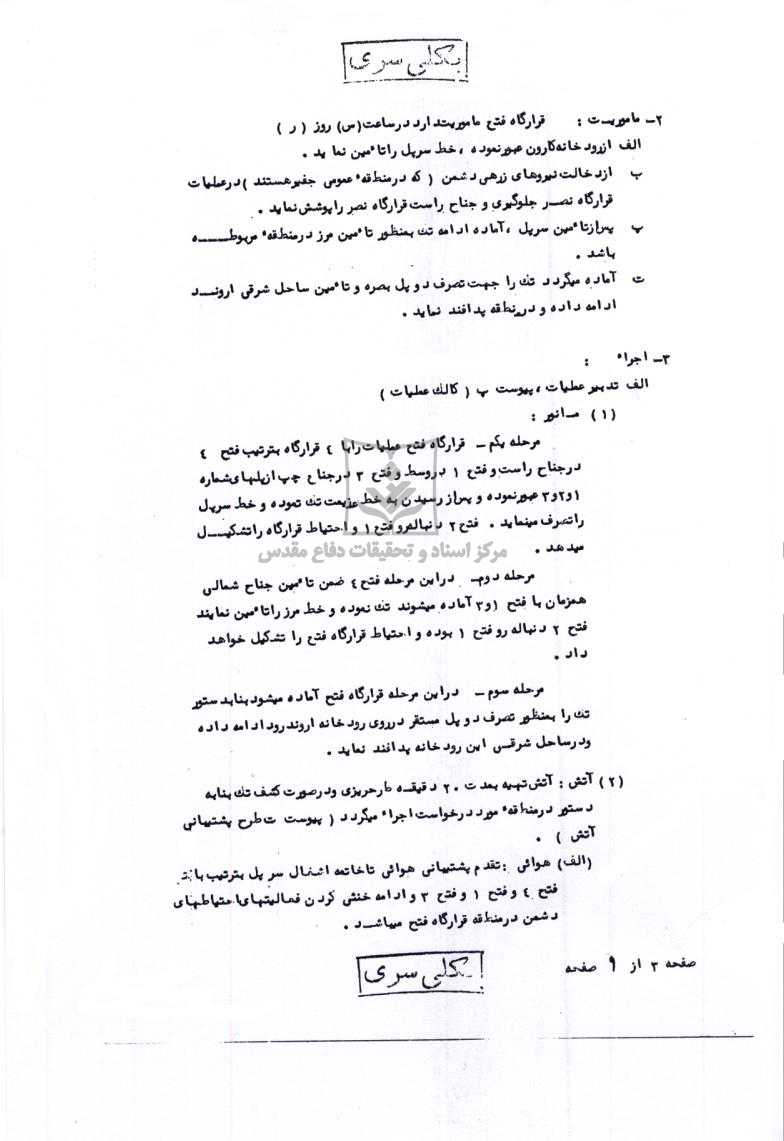 بکلی سری
۲ـ ماموریت :    قرارگاه فتح ماموریتدارد درساعت(س) روز ( ر )
الف  ازرودخانه‌کارون عبورنموده ، خط سرپل راتأمین نماید .
ب   ازدخالت نیروهای زرهی دشمن ( که درمنطقهٔ عمومی جفیرهستند ) درعملیات
قرارگاه نصر جلوگیری و جناح راست قرارگاه نصر را پوشش نماید .
پ   پس‌ازتأمین سرپل ، آماده ادامه تک بمنظور تأمین مرز درمنطقهٔ مربوطه
باشد .
ت   آماده میگردد تک را جهت تصرف دو پل بصره و تأمین ساحل شرقی اروند
ادامه داده و درمنطقه پدافند نماید .
۳ـ اجراء    :
الف تدبیر عملیات ، پیوست پ ( کالک عملیات )
(۱) مـانور :
مرحله یکم ـ قرارگاه فتح عملیات رابا ٤ قرارگاه بترتیب فتح ٤
درجناح راست و فتح ۱ دروسط و فتح ۳ درجناح چپ ازپلهای شماره
۱و۲و۳ عبورنموده و پس‌از رسیدن به خط عزیمت تک نموده و خط سرپل
راتصرف مینماید . فتح ۲ دنباله‌رو فتح ۱ و احتیاط قرارگاه راتشکیـــل
میدهد .
مرکز اسناد و تحقیقات دفاع مقدس
مرحله دوم ـ دراین مرحله فتح ٤ ضمن تأمین جناح شمالی
همزمان با فتح ۱و۳ آماده میشوند تک نموده و خط مرز راتأمین نمایند
فتح ۲ دنباله رو فتح ۱ بوده و احتیاط قرارگاه فتح را تشکیل خواهد
داد .
مرحله سوم ـ دراین مرحله قرارگاه فتح آماده میشود بنابدستور
تک را بمنظور تصرف دو پل مستقر درروی رودخانه اروندرود ادامه داده
ودرساحل شرقی این رودخانه پدافند نماید .
(۲) آتش : آتش تهیه بمدت ۲۰ دقیقه طرحریزی ودرصورت کشف تک بنابه
دستور درمنطقهٔ مورددرخواست اجراء میگردد ( پیوست ت طرح پشتیبانی
آتش ) .
(الف) هوائی : تقدم پشتیبانی هوائی تاخاتمه اشغال سرپل بترتیب با
فتح ٤ و فتح ۱ و فتح ۳ و ادامه خنثی کردن فعالیتهای‌احتیاطهای
دشمن درمنطقه قرارگاه فتح میباشـد .
صفحه ۳ از ۹ صفحه
بکلی سری